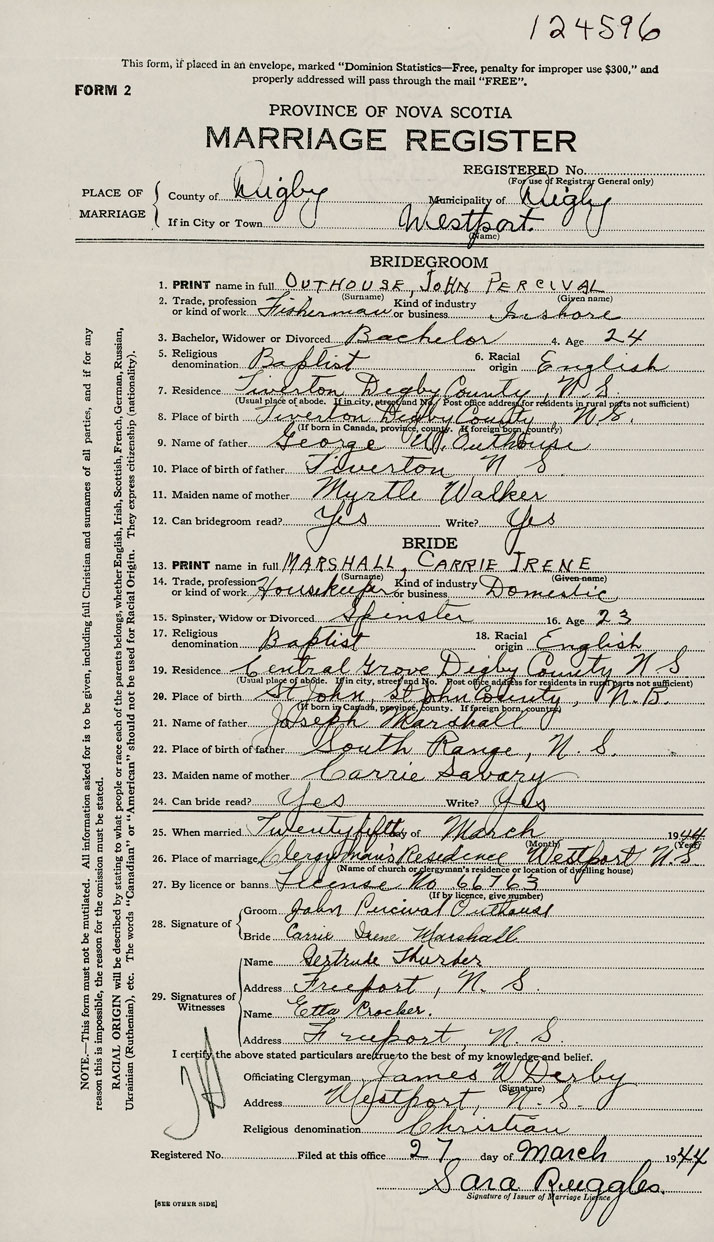 124596
This form, if placed in an envelope, marked "Dominion Statistics—Free, penalty for improper use $300," and
properly addressed will pass through the mail "FREE".
FORM 2
PROVINCE OF NOVA SCOTIA
MARRIAGE REGISTER
REGISTERED No.
(For use of Registrar General only)
PLACE OF MARRIAGE
County of Digby Municipality of Digby
If in City or Town Westport.
(Name)
BRIDEGROOM
1. PRINT name in full OUTHOUSE, JOHN PERCIVAL
(Surname) (Given name)
2. Trade, profession or kind of work Fisherman Kind of industry or business Inshore
3. Bachelor, Widower or Divorced Bachelor 4. Age 24
5. Religious denomination Baptist 6. Racial origin English
7. Residence Tiverton Digby County, N.S.
(Usual place of abode. If in city, street and No. Post office address for residents in rural parts not sufficient)
8. Place of birth Tiverton Digby County N.S.
(If born in Canada, province, county. If foreign born, country)
9. Name of father George W. Outhouse
10. Place of birth of father Tiverton N S
11. Maiden name of mother Myrtle Walker
12. Can bridegroom read? Yes Write? Yes
BRIDE
13. PRINT name in full MARSHALL, CARRIE IRENE
(Surname) (Given name)
14. Trade, profession or kind of work Housekeeper Kind of industry or business Domestic
15. Spinster, Widow or Divorced Spinster 16. Age 23
17. Religious denomination Baptist 18. Racial origin English
19. Residence Central Grove Digby County N S
(Usual place of abode. If in city, street and No. Post office address for residents in rural parts not sufficient)
20. Place of birth St John, St John County, N.B.
(If born in Canada, province, county. If foreign born, country)
21. Name of father Joseph Marshall
22. Place of birth of father South Range, N. S.
23. Maiden name of mother Carrie Savary
24. Can bride read? Yes Write? Yes
25. When married Twentyfifth day of March 1944
(Month) (Year)
26. Place of marriage Clergyman's Residence Westport N.S
(Name of church or clergyman's residence or location of dwelling house)
27. By licence or banns License No 66763
(If by licence, give number)
28. Signature of
Groom John Percival Outhouse
Bride Carrie Irene Marshall
29. Signatures of Witnesses
Name Gertrude Thurber
Address Freeport, N. S.
Name Etta Crocker.
Address Freeport, N. S.
I certify the above stated particulars are true to the best of my knowledge and belief.
Officiating Clergyman James W Derby
(Signature)
Address Westport, N. S.
Religious denomination Christian
Registered No. Filed at this office 27 day of March 1944
Sara Ruggles.
Signature of Issuer of Marriage Licence
[SEE OTHER SIDE]
NOTE.—This form must not be mutilated. All information asked for is to be given, including full Christian and surnames of all parties, and if for any
reason this is impossible, the reason for the omission must be stated.
RACIAL ORIGIN will be described by stating to what people or race each of the parents belongs, whether English, Irish, Scottish, French, German, Russian,
Ukrainian (Ruthenian), etc. The words "Canadian" or "American" should not be used for Racial Origin. They express citizenship (nationality).